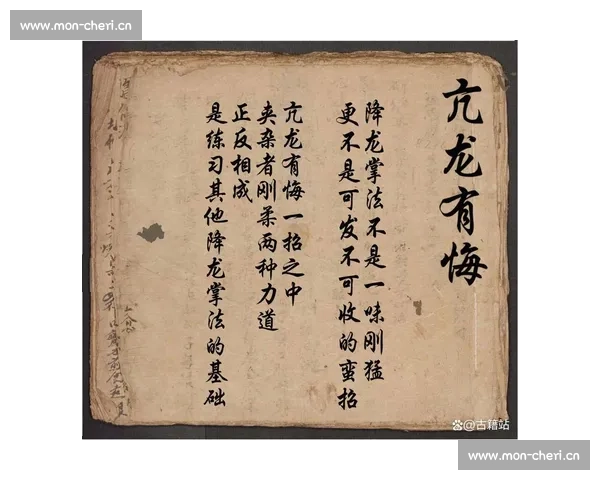 www.mon-cheri.cn
亢龙有悔
降龙掌法不是一味刚猛
更不是可发不可收的蛮招
亢龙有悔一招之中
夹杂者刚柔两种力道
正反相成
是练习其他降龙掌法的基础
@古籍站
www.mon-cheri.cn